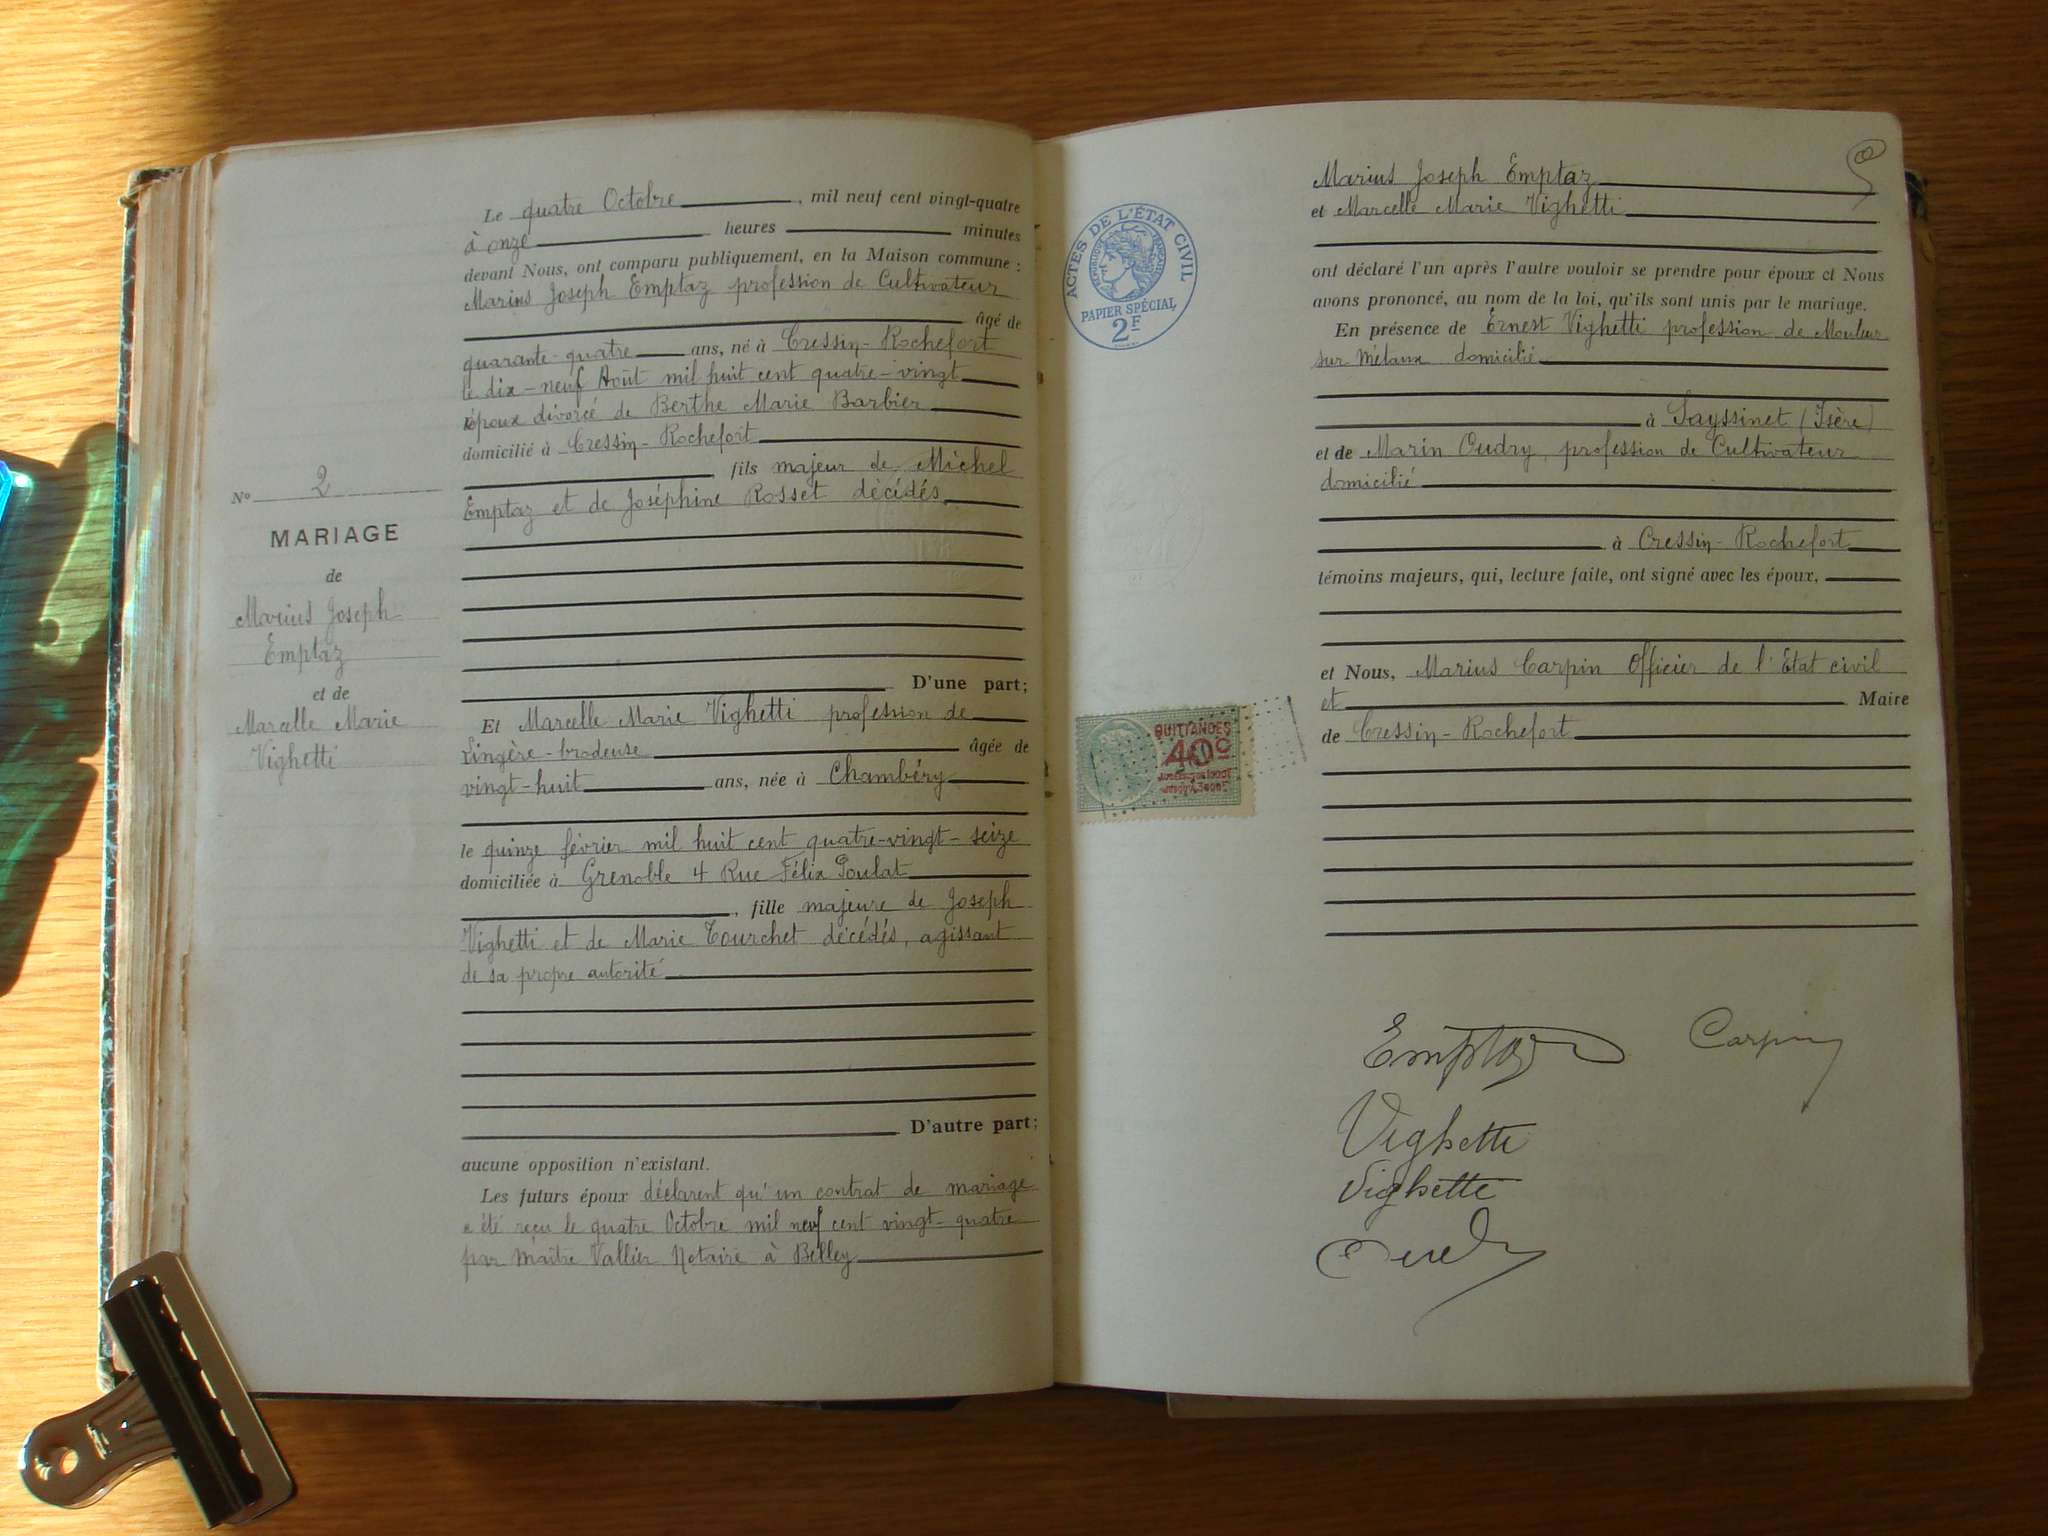 N° 2
MARIAGE
de
Marius Joseph
Emptaz
et de
Marcelle Marie
Vighetti
Le quatre Octobre, mil neuf cent vingt-quatre
à onze heures minutes
devant Nous, ont comparu publiquement, en la Maison commune :
Marius Joseph Emptaz profession de Cultivateur
âgé de
quarante-quatre ans, né à Cressin-Rochefort
le dix-neuf Août mil huit cent quatre-vingt
époux divorcé de Berthe Marie Barbier
domicilié à Cressin-Rochefort
fils majeur de Michel
Emptaz et de Joséphine Rosset décédés
D'une part;
Et Marcelle Marie Vighetti profession de
Lingère-brodeuse âgée de
vingt-huit ans, née à Chambéry
le quinze février mil huit cent quatre-vingt-seize
domiciliée à Grenoble 4 Rue Félix Poulat
, fille majeure de Joseph
Vighetti et de Marie Tourchet décédés, agissant
de sa propre autorité
D'autre part;
aucune opposition n'existant.
Les futurs époux déclarent qu'un contrat de mariage
a été reçu le quatre Octobre mil neuf cent vingt-quatre
par Maître Vallier Notaire à Belley
ACTES DE L'ÉTAT CIVIL
RÉPUBLIQUE FRANÇAISE
PAPIER SPÉCIAL
2F
QUITTANCES
40c
Marius Joseph Emptaz
et Marcelle Marie Vighetti
ont déclaré l'un après l'autre vouloir se prendre pour époux et Nous
avons prononcé, au nom de la loi, qu'ils sont unis par le mariage.
En présence de Ernest Vighetti profession de Mouleur
sur Métaux domicilié
à Sayssinet (Isère)
et de Marin Oudry, profession de Cultivateur
domicilié
à Cressin-Rochefort
témoins majeurs, qui, lecture faite, ont signé avec les époux,
et Nous, Marius Carpin Officier de l'Etat civil
et Maire
de Cressin-Rochefort
Emptaz Carpin
Vighetti
Vighetti